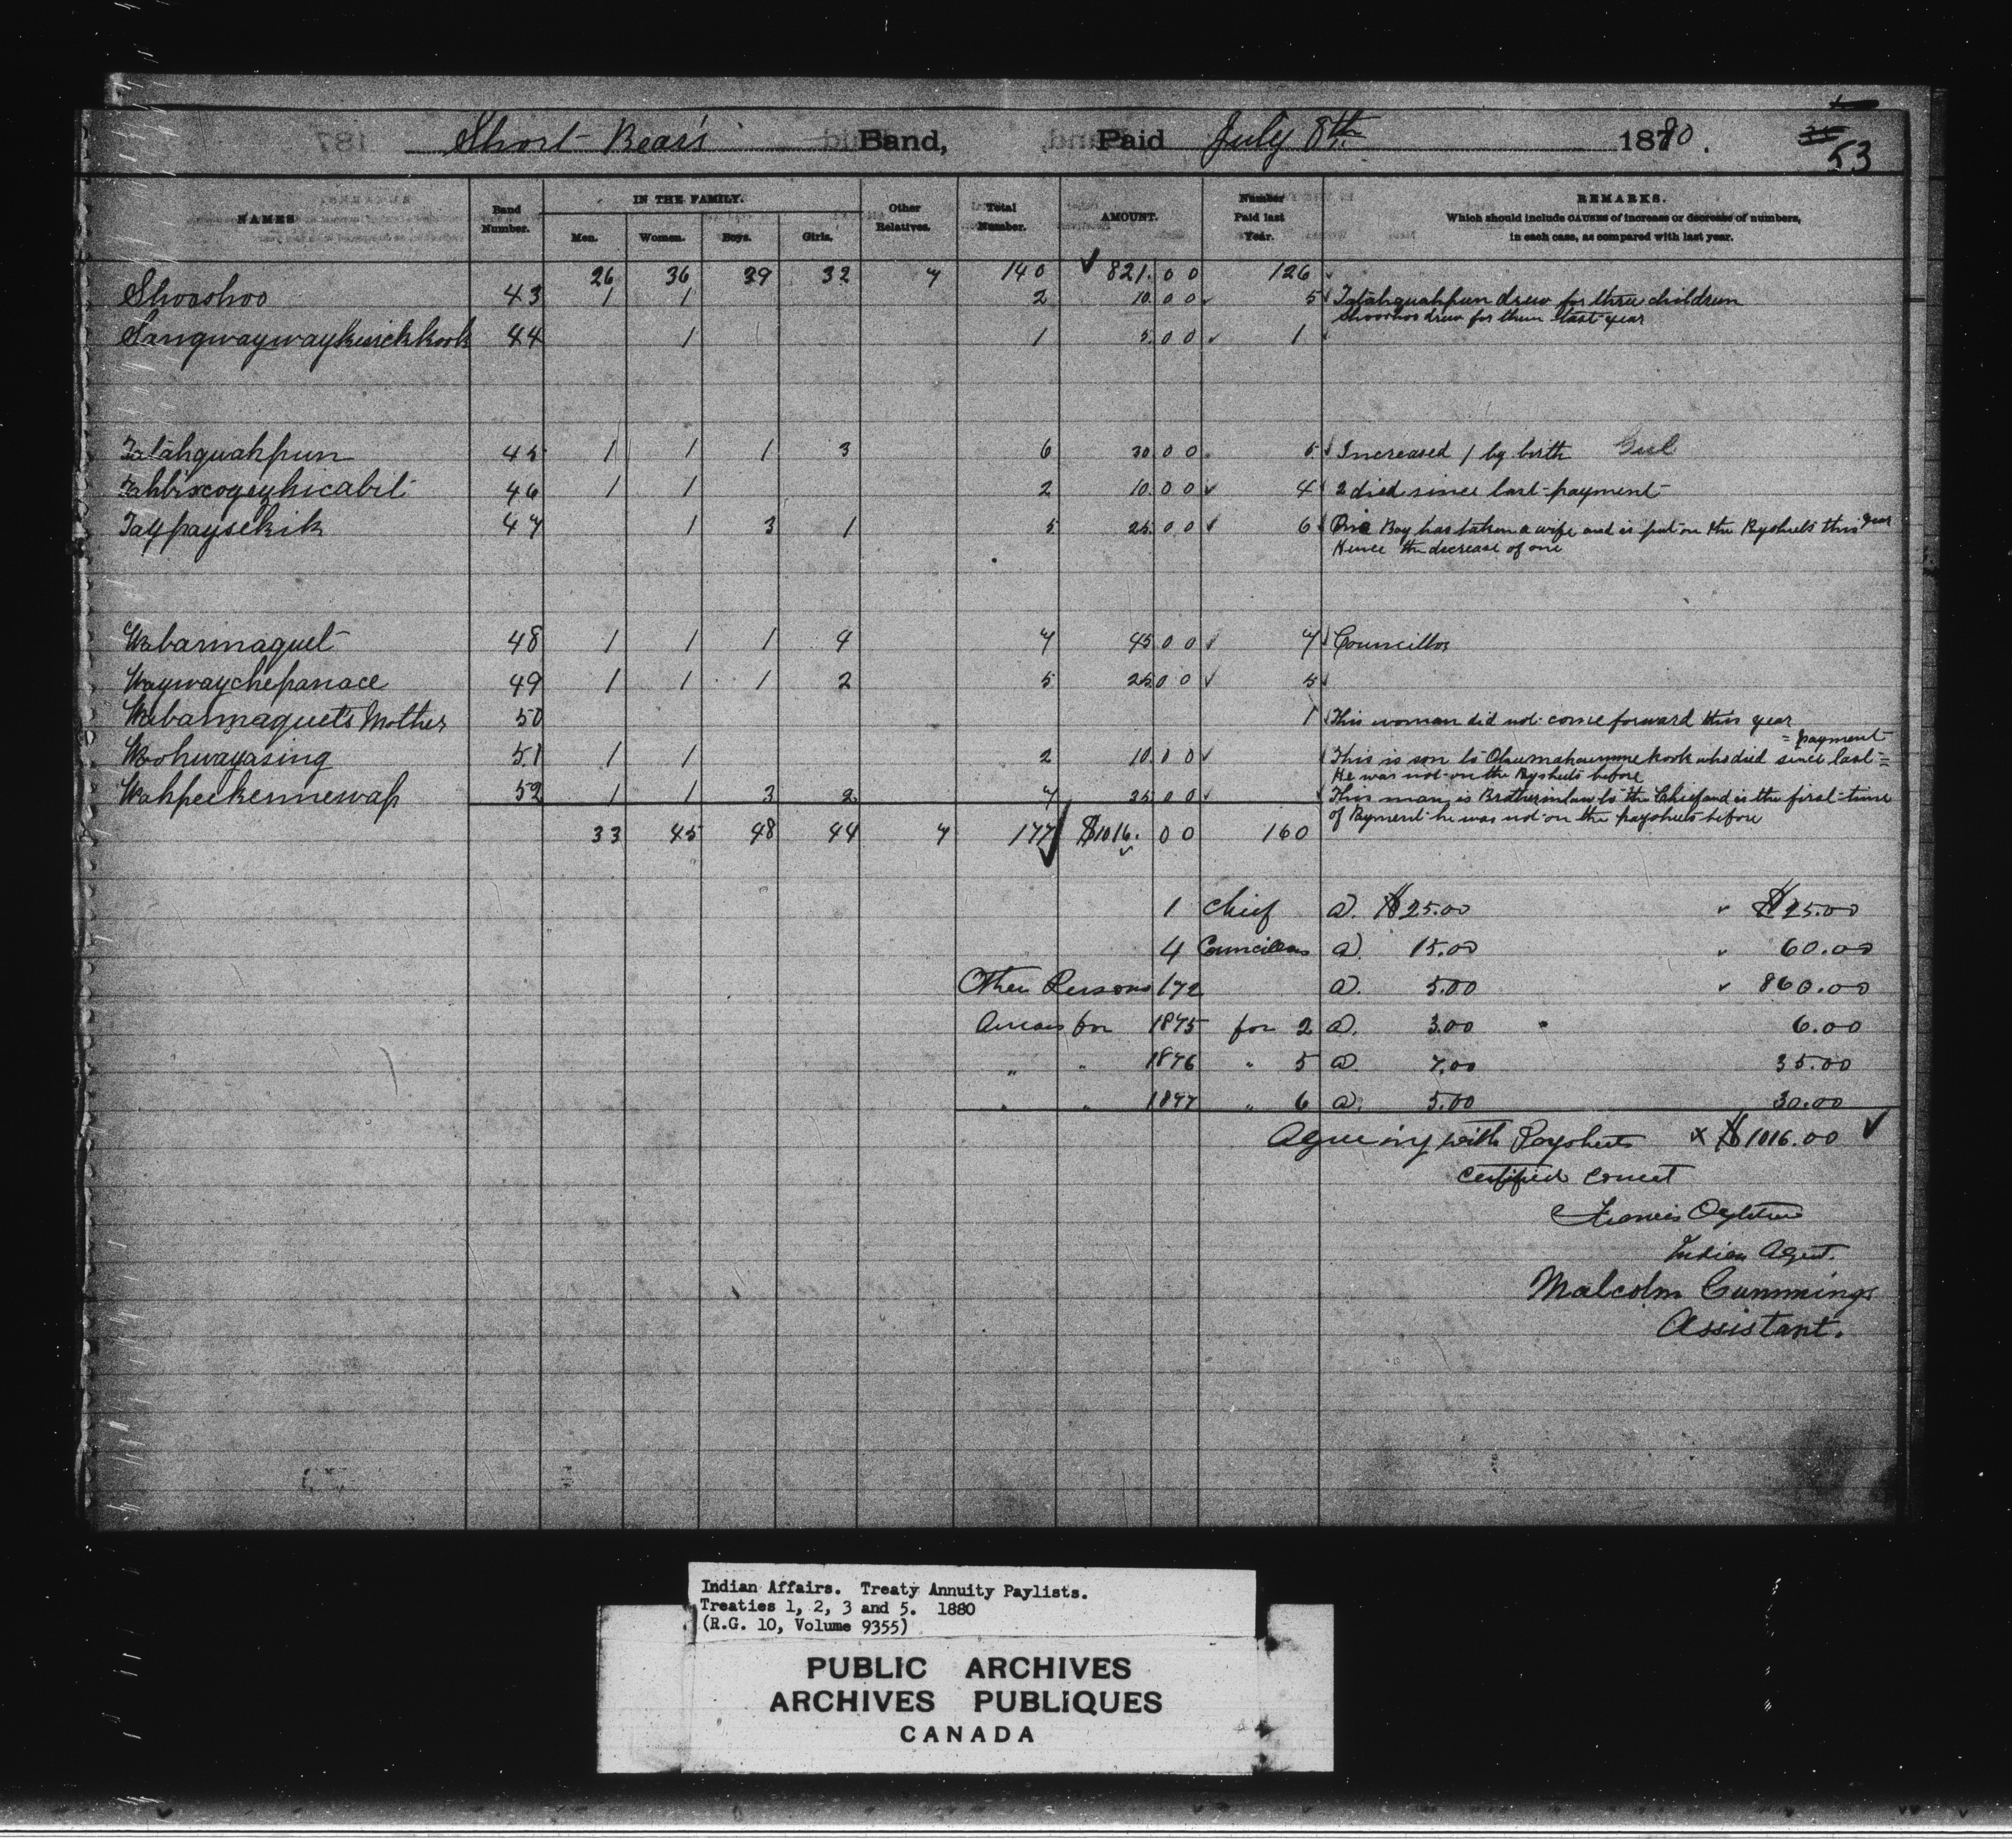 Short Bear's Band, Paid July 8th 1880.
53
NAMES Band Number. IN THE FAMILY. Men. Women. Boys. Girls. Other Relatives. Total Number. AMOUNT. Number Paid last Year. REMARKS.
Which should include CAUSES of increase or decrease of numbers,
in each case, as compared with last year.
26 36 39 32 7 140 821.00 126
Shooshoo 43 1 1 2 10.00 5 Tatahquahpun drew for three children
Shooshoo drew for them last year
Sangwaywaykwickkook 44 1 1 5.00 1
Tatahquahpun 45 1 1 1 3 6 30.00 5 Increased 1 by birth Girl
46 1 1 2 10.00 4 2 died since last payment
Taypaysekik 47 1 3 1 5 25.00 6 One Boy has taken a wife and is put on the Paysheets this year
Hence the decrease of one
Wabarmaquet 48 1 1 1 4 7 45.00 7 Councillor
Waywaychepanace 49 1 1 1 2 5 25.00 5
Wabarmaquet's Mother 50 1 This woman did not come forward this year
Woohwayasing 51 1 1 2 10.00 This is son to who died since last payment
He was not on the Paysheets before
Wahpeekennewap 52 1 1 3 2 7 35.00 This man is Brotherinlaw to the Chief and is the first time
of Payment he was not on the paysheets before
33 45 48 44 7 177 $1016.00 160
1 Chief @ $25.00 $25.00
4 Councillors @ 15.00 60.00
Other Persons 172 @ 5.00 860.00
Arrears for 1875 for 2 @ 3.00 6.00
" " 1876 " 5 @ 7.00 35.00
" " 1877 " 6 @ 5.00 30.00
Agreeing with Paysheets x $1016.00
Certified Correct
Francis Ogletree
Indian Agent.
Malcolm Cummings
Assistant.
Indian Affairs. Treaty Annuity Paylists.
Treaties 1, 2, 3 and 5. 1880
(R.G. 10, Volume 9355)
PUBLIC ARCHIVES
ARCHIVES PUBLIQUES
CANADA